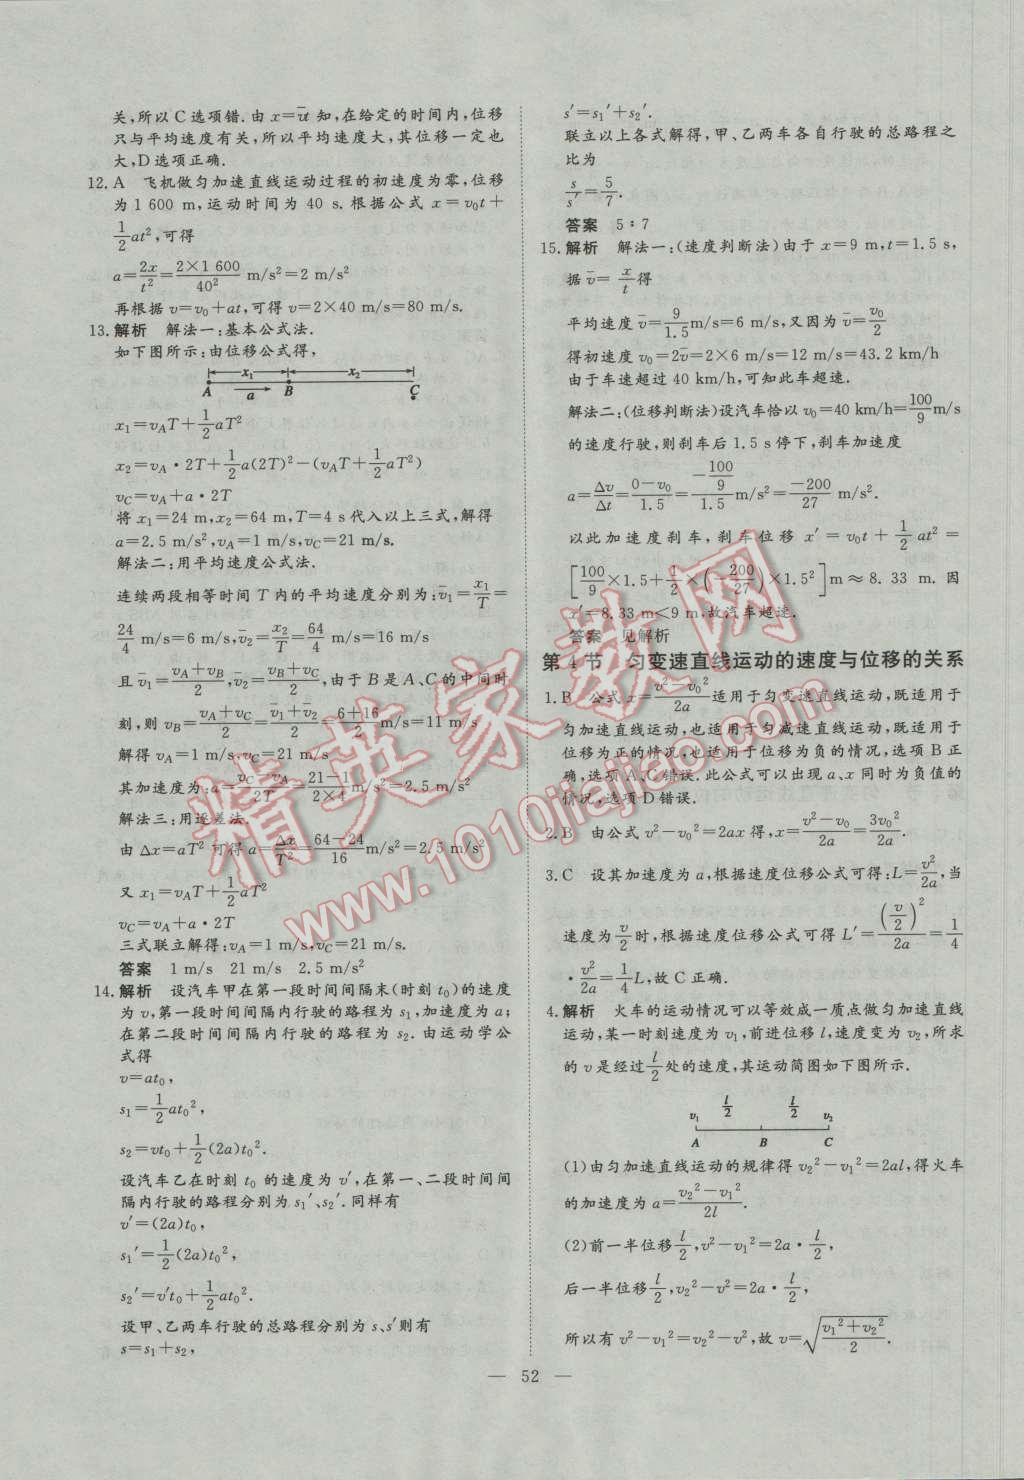 关,所以 C 选项错.由 x=v̄t 知,在给定的时间内,位移
只与平均速度有关,所以平均速度大,其位移一定也
大,D 选项正确.
12. A 飞机做匀加速直线运动过程的初速度为零,位移
为 1 600 m,运动时间为 40 s.根据公式 x=v₀t+
1/2 at²,可得
a=2x/t²=(2×1 600)/40² m/s²=2 m/s²
再根据 v=v₀+at,可得 v=2×40 m/s=80 m/s.
13. 解析 解法一:基本公式法.
如下图所示:由位移公式得,
x₁ x₂
A a B C
x₁=v_A T+1/2 aT²
x₂=v_A·2T+1/2 a(2T)²-(v_A T+1/2 aT²)
v_C=v_A+a·2T
将 x₁=24 m,x₂=64 m,T=4 s 代入以上三式,解得
a=2.5 m/s²,v_A=1 m/s,v_C=21 m/s.
解法二:用平均速度公式法.
连续两段相等时间 T 内的平均速度分别为:v̄₁=x₁/T=
24/4 m/s=6 m/s,v̄₂=x₂/T=64/4 m/s=16 m/s
且 v̄₁=(v_A+v_B)/2,v̄₂=(v_B+v_C)/2,由于 B 是 A、C 的中间时
刻,则 v_B=(v_A+v_C)/2=(v̄₁+v̄₂)/2=(6+16)/2 m/s=11 m/s
解得 v_A=1 m/s,v_C=21 m/s
其加速度为:a=(v_C-v_A)/2T=(21-1)/(2×4) m/s²=2.5 m/s²
解法三:用逐差法.
由 Δx=aT² 可得 a=Δx/T²=(64-24)/16 m/s²=2.5 m/s²
又 x₁=v_A T+1/2 aT²
v_C=v_A+a·2T
三式联立解得:v_A=1 m/s,v_C=21 m/s.
答案 1 m/s 21 m/s 2.5 m/s²
14. 解析 设汽车甲在第一段时间间隔末(时刻 t₀)的速度
为 v,第一段时间间隔内行驶的路程为 s₁,加速度为 a;
在第二段时间间隔内行驶的路程为 s₂.由运动学公
式得
v=at₀,
s₁=1/2 at₀²,
s₂=vt₀+1/2(2a)t₀².
设汽车乙在时刻 t₀ 的速度为 v′,在第一、二段时间间
隔内行驶的路程分别为 s₁′、s₂′.同样有
v′=(2a)t₀,
s₁′=1/2(2a)t₀²,
s₂′=v′t₀+1/2 at₀².
设甲、乙两车行驶的总路程分别为 s、s′则有
s=s₁+s₂,
s′=s₁′+s₂′.
联立以上各式解得,甲、乙两车各自行驶的总路程之
比为
s/s′=5/7.
答案 5∶7
15. 解析 解法一:(速度判断法)由于 x=9 m,t=1.5 s,
据 v̄=x/t得
平均速度 v̄=9/1.5 m/s=6 m/s,又因为 v̄=v₀/2
得初速度 v₀=2v̄=2×6 m/s=12 m/s=43.2 km/h
由于车速超过 40 km/h,可知此车超速.
解法二:(位移判断法)设汽车恰以 v₀=40 km/h=100/9 m/s
的速度行驶,则刹车后 1.5 s 停下,刹车加速度
a=Δv/Δt=(0-v₀)/1.5=(-100/9)/1.5 m/s²=-200/27 m/s².
以此加速度刹车,刹车位移 x′=v₀t+1/2 at²=
[100/9×1.5+1/2×(-200/27)×1.5²]m≈8.33 m.因
x′=8.33 m<9 m,故汽车超速.
答案 见解析
第 4 节 匀变速直线运动的速度与位移的关系
1. B 公式 x=(v²-v₀²)/2a 适用于匀变速直线运动,既适用于
匀加速直线运动,也适用于匀减速直线运动,既适用于
位移为正的情况,也适用于位移为负的情况,选项 B 正
确,选项 A、C 错误.此公式可以出现 a、x 同时为负值的
情况,选项 D 错误.
2. B 由公式 v²-v₀²=2ax 得,x=(v²-v₀)/2a=3v₀²/2a.
3. C 设其加速度为 a,根据速度位移公式可得:L=v²/2a,当
速度为 v/2 时,根据速度位移公式可得 L′=(v/2)²/2a=1/4
·v²/2a=1/4 L,故 C 正确.
4. 解析 火车的运动情况可以等效成一质点做匀加速直线
运动,某一时刻速度为 v₁,前进位移 l,速度变为 v₂,所求
的 v 是经过 l/2 处的速度,其运动简图如下图所示.
v₁ l/2 l/2 v₂
A B C
(1)由匀加速直线运动的规律得 v₂²-v₁²=2al,得火车
的加速度为 a=(v₂²-v₁²)/2l.
(2)前一半位移 l/2,v²-v₁²=2a·l/2,
后一半位移 l/2,v₂²-v²=2a·l/2,
所以有 v²-v₁²=v₂²-v²,故 v=√((v₁²+v₂²)/2).
— 52 —
精英家教网
www.1010jiajiao.com